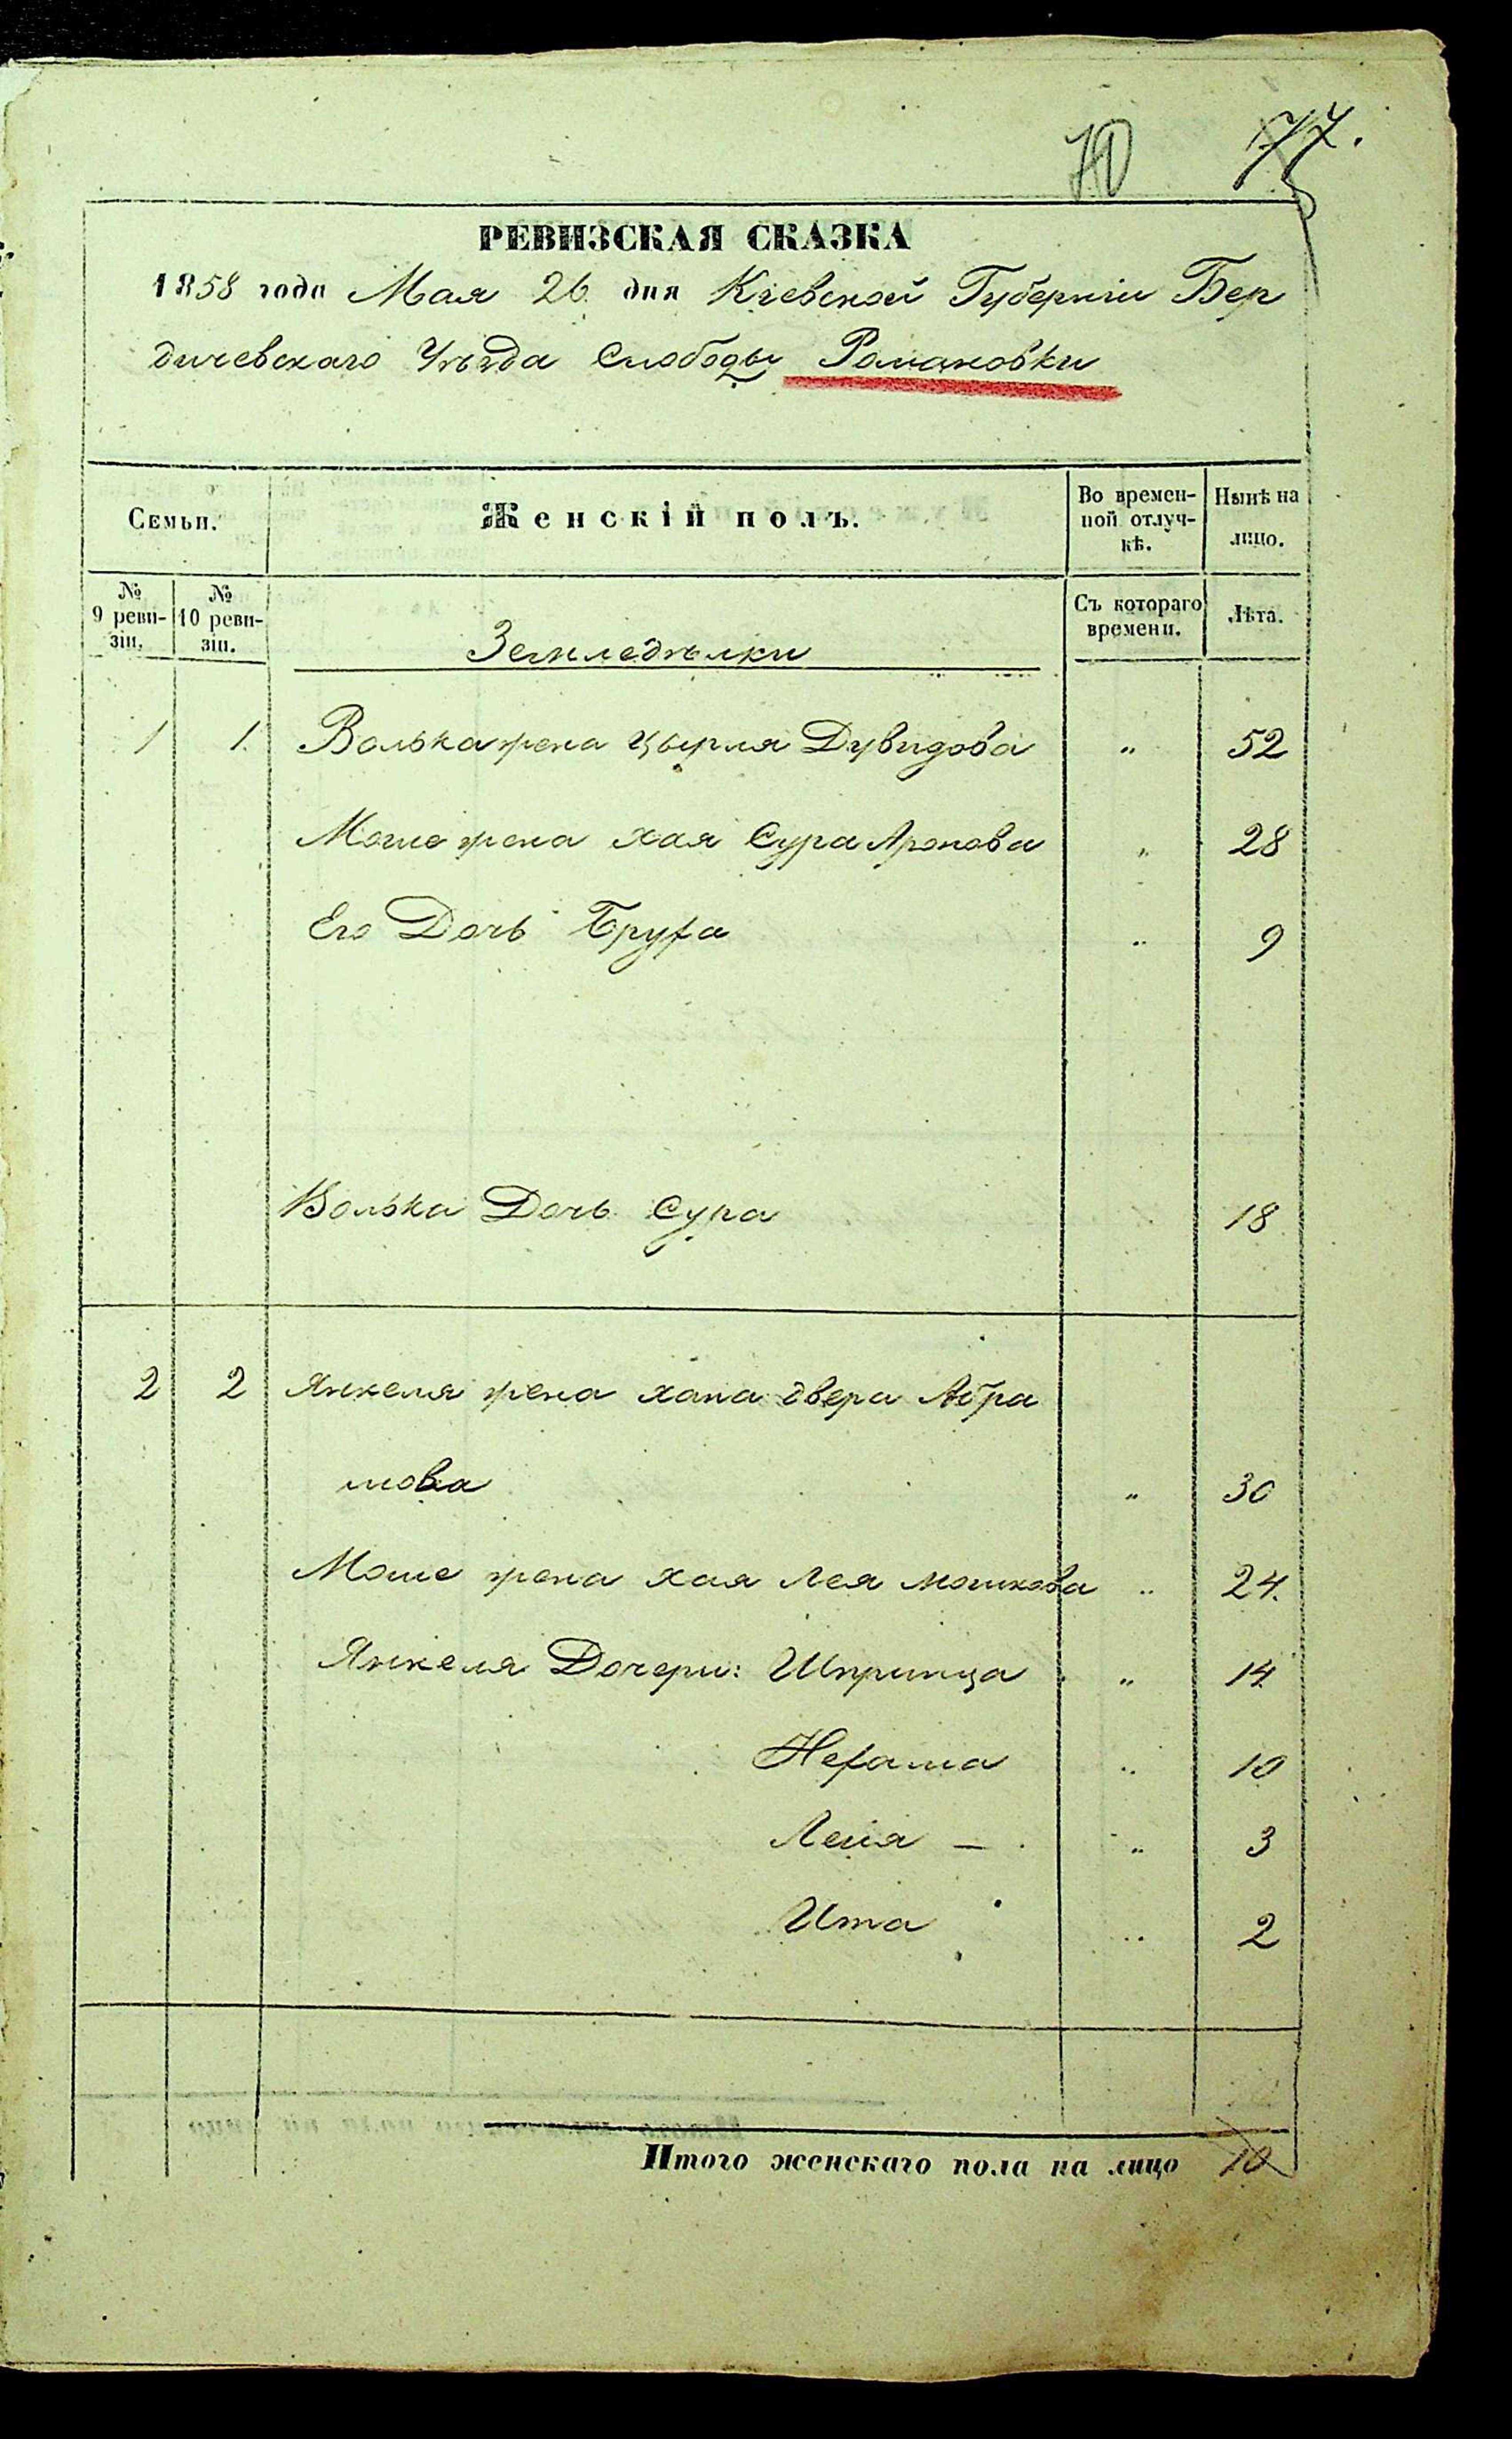 70 77.
РЕВИЗСКАЯ СКАЗКА
1858 года Мая 26 дня Кіевской Губерніи Бер
дичевскаго Уѣзда Слободы Романовки
Семьи. Женскій полъ. Во времен-ной отлуч-кѣ. Нынѣ на лицо.
№ 9 реви-зіи. № 10 реви-зіи. Земледѣлки Съ котораго времени. Лѣта.
1 1. Волька жена Цырля Дувидова „ 52
Моше жена Хая Сура Аронова „ 28
Его Дочь Бруха „ 9
Волька Дочь Сура 18
2 2 Янкеля жена Хана Двера Абра
мова „ 30
Моше жена Хая Лея Мошкова „ 24.
Янкеля Дочери: Шпринца „ 14
Нехама „ 10
Лея — „ 3
Ита „ 2
Итого женскаго пола на лицо 10